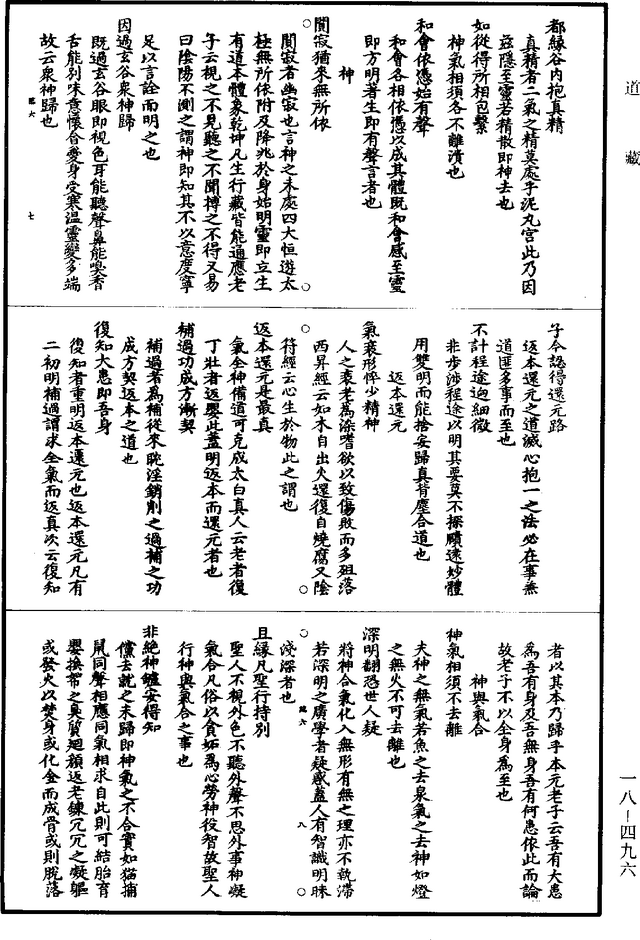 道藏
都緣谷內抱真精
真精者二氣之精莫處乎泥丸宮此乃因
茲隱至靈若精散即神去也
如從得所相包繫
神氣相須各不離潰也
和會依憑始有聲
和會各相依憑以成其體既和會感至靈
即方明著生即有聲言者也
神
閴寂猶來無所依
閴寂者幽寂也言神之未處四大恒遊太
極無所依附及降兆於身始明靈即立生
有道本體象乾坤凡生行藏皆能通應老
子云視之不見聽之不聞搏之不得又易
曰陰陽不測之謂神即知其不以意度寧
足以言詮而明之也
因過玄谷眾神歸
既過玄谷眼即視色耳能聽聲鼻能嗅香
舌能別味意懷合愛身受寒溫靈變多端
故云眾神歸也
七
子今認得還元路
返本還元之道滅心抱一之法必在事無
道匪多事而至也
不計程途迨細微
非步涉程途以明其要莫不探賾遠妙體
用雙明而能捨妄歸真背塵合道也
返本還元
氣衰形悴少精神
人之衰老為深嗜欲以致傷敗而多殂落
西昇經云如木自出火還復自燒腐又陰
符經云心生於物此之謂也
返本還元是最真
氣全神備道可克成太白真人云老者復
丁壯者返嬰此蓋明返本而還元者也
補過功成方漸契
補過者為補從來躭淫銷削之過補之功
成方契返本之道也
復知大患即吾身
復知者重明返本還元也返本還元凡有
二初明補過謂求全氣而返真次云復知
者以其本乃歸乎本元老子云吾有大患
為吾有身及吾無身吾有何患依此而論
故老子不以全身為至也
神與氣合
神氣相須不去離
夫神之無氣若魚之去泉氣之去神如燈
之無火不可去離也
深明翻恐世人疑
將神合氣化入無形有無之理亦不執滯
若深明之廣學者疑惑蓋人有智識明昧
淺深者也
八
且緣凡聖行持別
聖人不視外色不聽外聲不思外事神凝
氣合凡俗以貪妬為心勞神役智故聖人
行神與氣合之事也
非絕神鑪安得知
儻去就之未歸即神氣之不合實如猫捕
鼠同聲相應同氣相求自此則可結胎育
嬰換常之臭質迴顏返老鍊冗冗之凝軀
或發火以焚身或化金而成骨或則脫落
一八-四九六